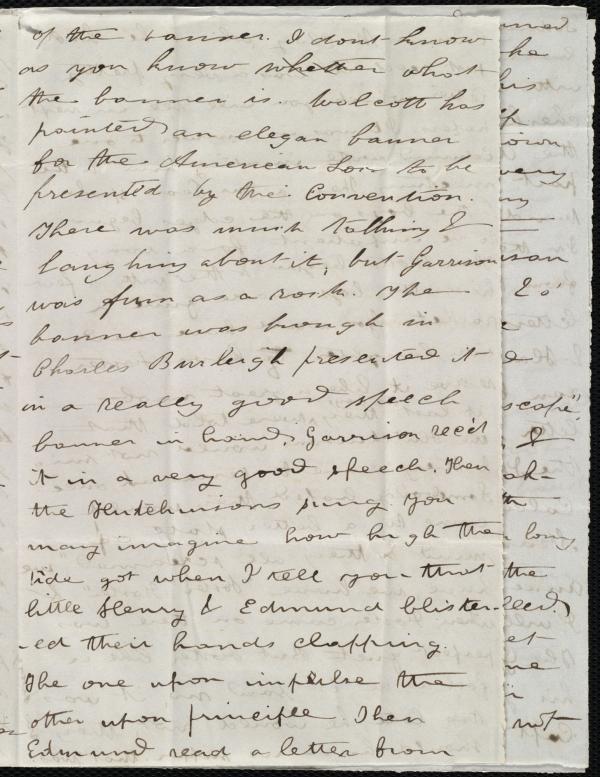 of the banner. I dont know
as you know whether what
the banner is. Wolcott has
painted an elegan banner
for the American Soc to be
presented by the Convention.
There was much talking &
laughing about it, but Garrison
was firm as a rock. The
banner was brough in
Charles Burleigh presented it
in a really good speech
banner in hand. Garrison rec'd
it in a very good speech. Then
the Hutchinsons sung. You
may imagine how high the
tide got when I tell you that
little Henry & Edmund blister
-ed their hands clapping.
The one upon impulse the
other upon principle Then
Edmund read a letter from
he
his
own
very
my
son
&
scape"
&
th
long
the
et
me
not